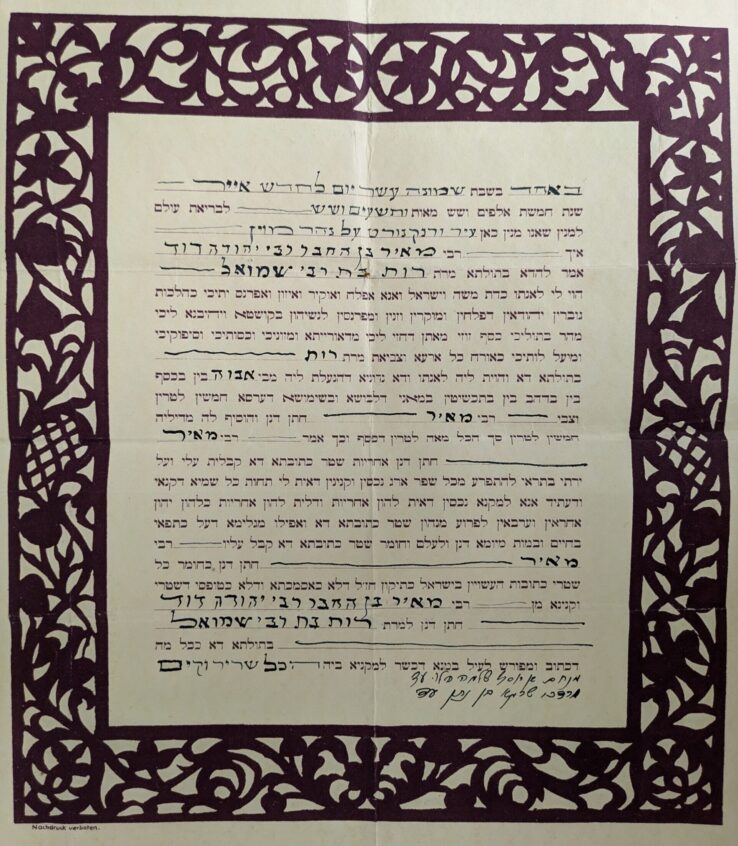 באחד בשבת שמונה עשר יום לחדש אייר
שנת חמשת אלפים ושש מאות ותשעים ושש לבריאת עולם
למנין שאנו מנין כאן עיר פרנקפורט על נהר מוין
איך רבי מאיר בן החבר רבי יהודה דוד
אמר להדא בתולתא מרת רות בת רבי שמואל
הוי לי לאנתו כדת משה וישראל ואנא אפלח ואוקיר ואיזון ואפרנס יתיכי כהלכות
גוברין יהודאין דפלחין ומוקרין וזנין ומפרנסין לנשיהון בקושטא ויהיבנא ליכי
מהר בתוליכי כסף זוזי מאתן דחזי ליכי מדאורייתא ומזוניכי וכסותיכי וסיפוקיכי
ומיעל לותיכי כאורח כל ארעא וצביאת מרת רות
בתולתא דא והוית ליה לאנתו ודא נדוניא דהנעלת ליה מבי אבוה בין בכסף
בין בדהב בין בתכשיטין במאני דלבישא ובשימושא דערסא חמשין לטרין
וצבי רבי מאיר חתן דנן והוסיף לה מדיליה
חמשין לטרין סך הכל מאה לטרין דכסף וכך אמר רבי מאיר
חתן דנן אחריות שטר כתובתא דא קבלית עלי ועל
ירתי בתראי להתפרע מכל שפר ארג נכסין וקנינין דאית לי תחות כל שמיא דקנאי
ודעתיד אנא למקנא נכסין דאית להון אחריות ודלית להון אחריות כלהון יהון
אחראין וערבאין לפרוע מנהון שטר כתובתא דא ואפילו מגלימא דעל כתפאי
בחיים ובמות מיומא דנן ולעלם וחומר שטר כתובתא דא קבל עליו רבי
מאיר חתן דנן כחומר כל
שטרי כתובות העשויין בישראל כתיקון חזל דלא כאסמכתא ודלא כטופסי דשטרי
וקנינא מן רבי מאיר בן החבר רבי יהודה דוד
חתן דנן למרת רות בת רבי שמואל
בתולתא דא ככל מה
דכתוב ומפורש לעיל במנא דכשר למקניא ביה הכל שריר וקים
מנחם שלמה הלוי עד
מרדכי בן נתן עד
Nachdruck verboten.